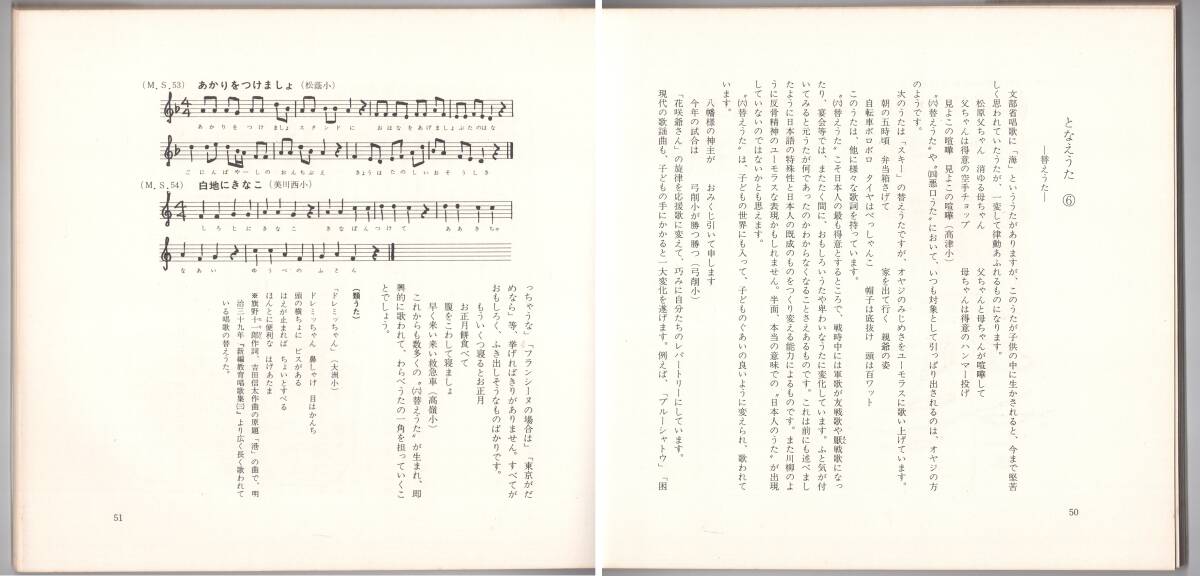 となえうた ⑥
―替えうた―
文部省唱歌に「海」といううたがありますが、このうたが子供の中に生かされると、今まで堅苦
しく思われていたうたが、一変して律動あふれるものになります。
松原父ちゃん 消ゆる母ちゃん 父ちゃんと母ちゃんが喧嘩して
父ちゃんは得意の空手チョップ 母ちゃんは得意のハンマー投げ
見よこの喧嘩 見よこの喧嘩(高津小)
〝㈥替えうた〟や〝㈣悪口うた〟において、いつも対象として引っぱり出されるのは、オヤジの方
のようです。
次のうたは「スキー」の替えうたですが、オヤジのみじめさをユーモラスに歌い上げています。
朝の五時頃 弁当箱さげて 家を出て行く 親爺の姿
自転車ボロボロ タイヤはぺっしゃんこ 帽子は底抜け 頭は百ワット
このうたは、他に様々な歌詞を持っています。
〝㈥替えうた〟こそ日本人の最も得意とするところで、戦時中には軍歌が友戦歌や厭戦歌になっ
たり、宴会等では、またたく間に、おもしろいうたや卑わいなうたに変化しています。ふと気が付
いてみると元うたが何であったのかわからなくなることさえあるものです。これは前にも述べまし
たように日本語の特殊性と日本人の既成のものをつくり変える能力によるものです。また川柳のよ
うに反骨精神のユーモラスな表現かもしれません。半面、本当の意味での〝日本人のうた〟が出現
していないのではないかとも思えます。
〝㈥替えうた〟は、子どもの世界にも入って、子どものぐあいの良いように変えられ、歌われて
います。
八幡様の神主が おみくじ引いて申します
今年の試合は 弓削小が勝つ勝つ(弓削小)
「花咲爺さん」の旋律を応援歌に変えて、巧みに自分たちのレパートリーにしています。
現代の歌謡曲も、子どもの手にかかると一大変化を遂げます。例えば、「ブルーシャトウ」「困
50
(M.S.53) あかりをつけましょ (松蔭小)
あかりをつけましょ スタンドに おはなをあげましょ ぶたのはな
ごにんばやーしの おんちぶえ きょうは たのしい おそうしき
(M.S.54) 白地にきなこ (美川西小)
しろじに きなこ きなぱんつけて ああきちゃ
なあい ゆうべの ふとん
っちゃうな」「フランシーヌの場合は」「東京がだ
めなら」等、挙げればきりがありません。すべてが
おもしろく、ふき出しそうなものばかりです。
もういくつ寝るとお正月
お正月餅食べて
腹をこわして寝ましょ
早く来い来い救急車(高嶺小)
これからも数多くの〝㈥替えうた〟が生まれ、即
興的に歌われて、わらべうたの一角を担っていくこ
とでしょう。
(類うた)
「ドレミッちゃん」(大洲小)
ドレミッちゃん 鼻しゃげ 目はかんち
頭の横ちょに ビスがある
はえが止まれば ちょいとすべる
ほんとに便利な はげあたま
※旗野十一郎作詞、吉田信太作曲の原題「港」の曲で、明
治三十九年『新編教育唱歌集㈢』より広く長く歌われて
いる唱歌の替えうた。
51